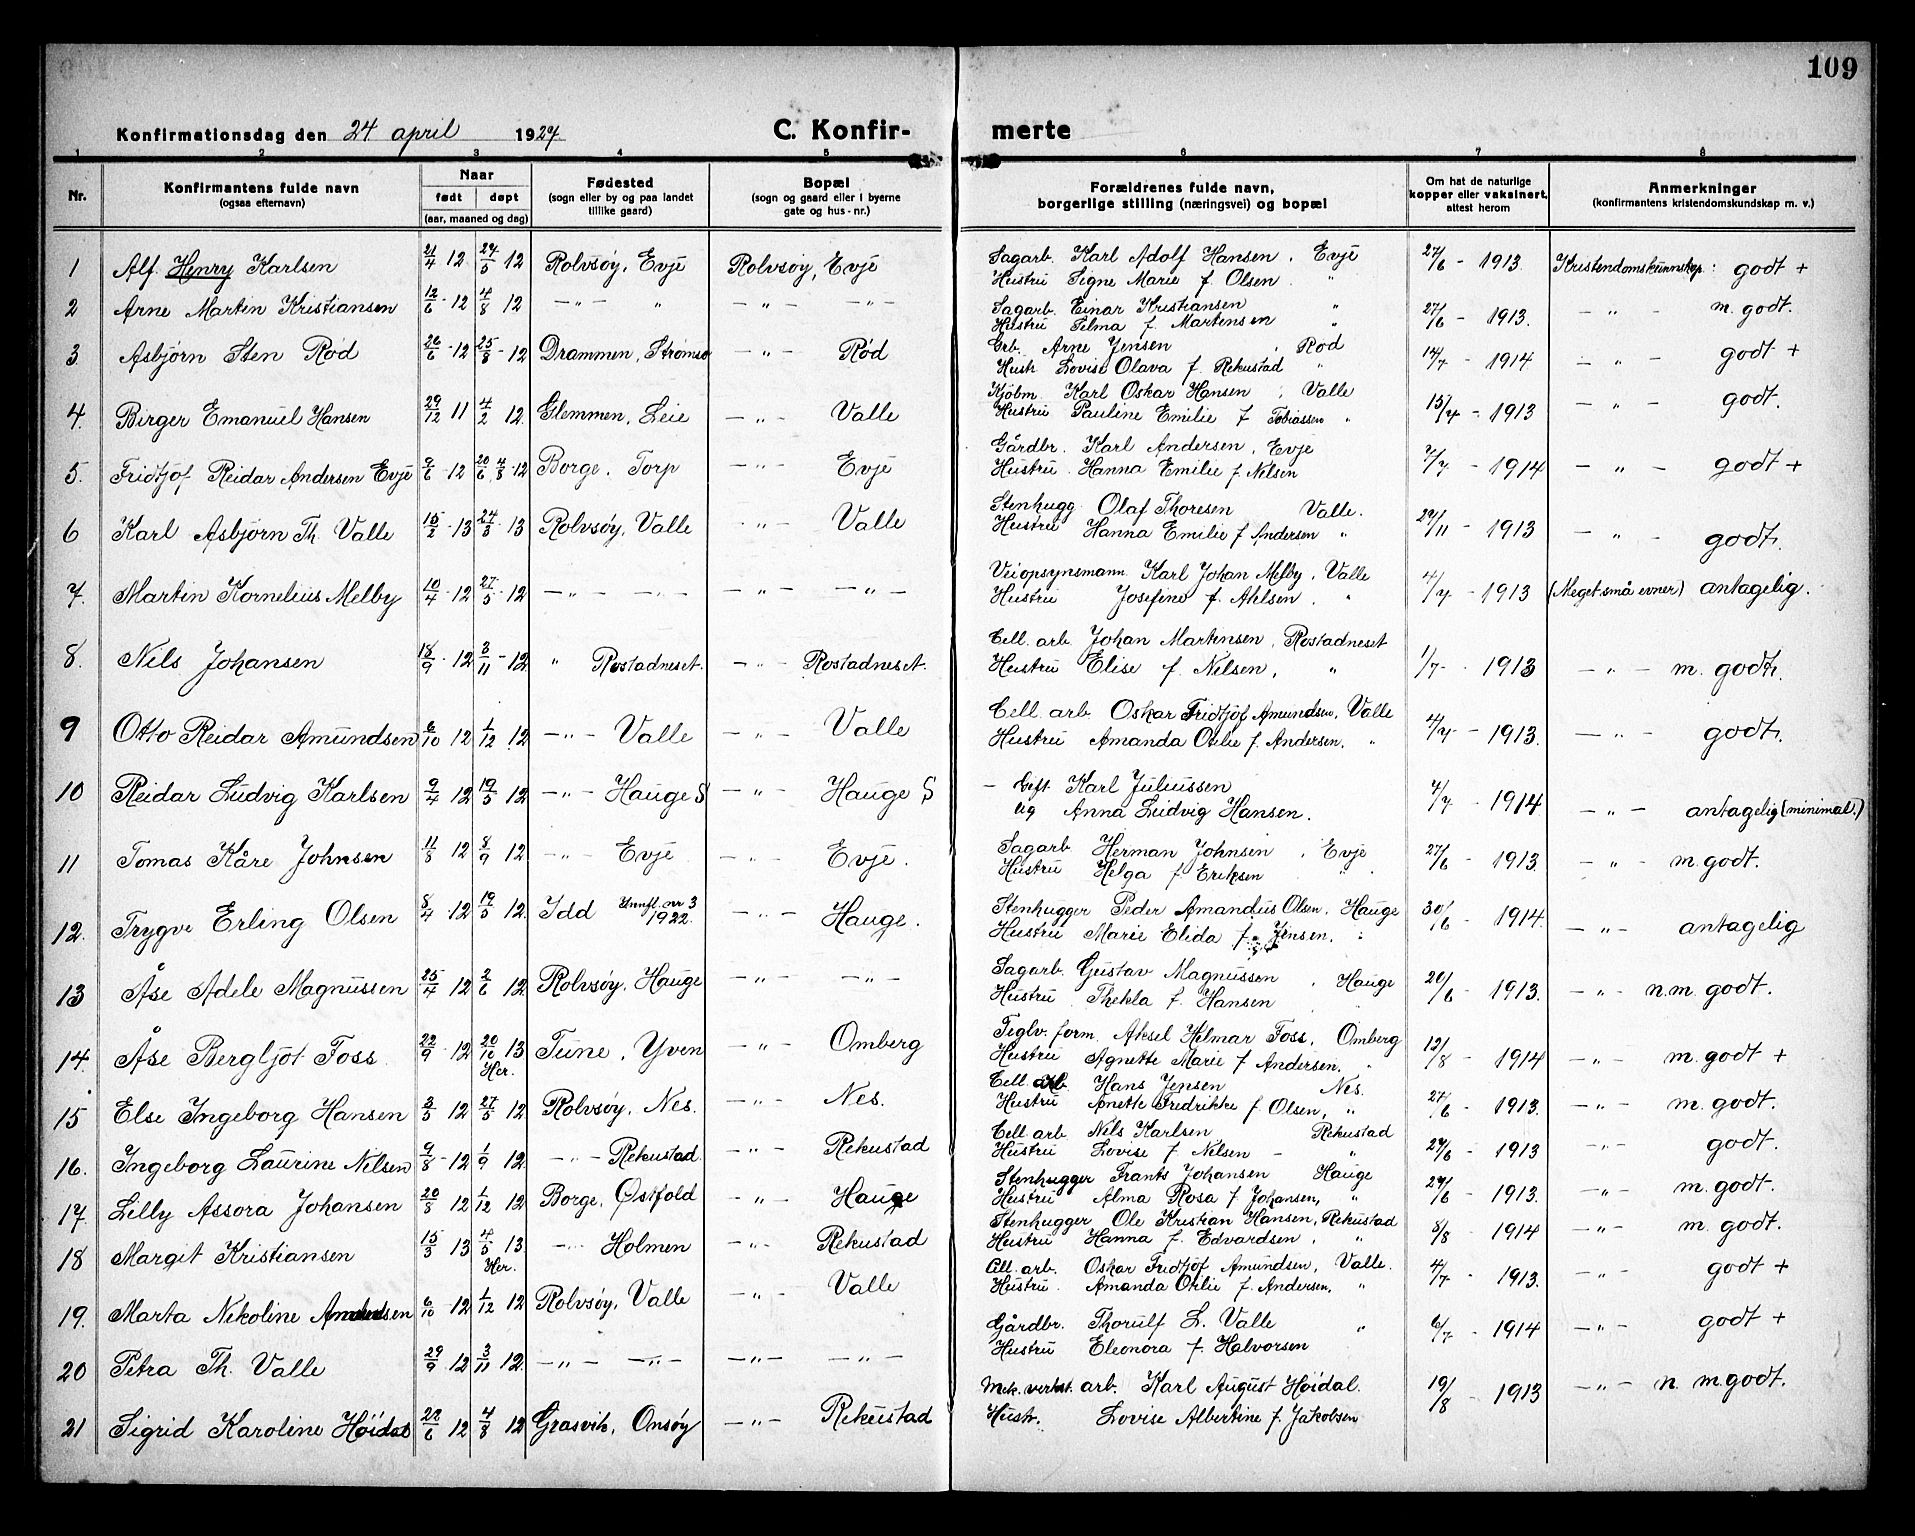 109
Konfirmationsdag den 24 april 1927 C. Konfir- merte
1 2 3 4 5 6 7 8
Nr. Konfirmantens fulde navn (ogsaa efternavn) Naar født døpt (aar, maaned og dag) Fødested (sogn eller by og paa landet tillike gaard) Bopæl (sogn og gaard eller i byerne gate og hus-nr.) Forældrenes fulde navn, borgerlige stilling (næringsvei) og bopæl Om hat de naturlige kopper eller vaksinert, attest herom Anmerkninger (konfirmantens kristendomskundskap m. v.)
1 Alf Henry Karlsen 21/4 12 27/5 12 Rolvsöy, Evje Rolvsöy, Evje Sagarb. Karl Adolf Hansen, Evje 27/6 - 1913 Kristendomskunnskap: godt +
Hustru Signe Marie f. Olsen "
2 Arne Martin Kristiansen 12/6 - 12 4/8 12 - " - " - " - - " - Sagarb. Einar Kristiansen " 27/6 - 1913. - " - m. godt.
Hustru Telma f. Martensen "
3 Asbjörn Sten Röd 26/6 - 12 25/8 - 12 Drammen, Strömsø - " - Röd Grb. Arne Jensen, Röd 14/7 - 1914 - " - godt +
Hustr. Lovise Olava f. Rekustad "
4. Birger Emanuel Hansen 29/12 11 4/2 12. Glemmen, Leie - " - Valle Kjöbm. Karl Oskar Hansen, Valle 15/7 - 1913 - " - godt.
Hustru Pauline Emilie f Tobiassen "
5. Fridtjof Reidar Andersen Evje 9/6 - 12 20/6 4/8 - 12 Borge, Torp - " - Evje Gårdbr. Karl Andersen, Evje 7/7 - 1914 - " - godt +
Hustru Hanna Emilie f. Nilsen
6 Karl Asbjörn Th. Valle 15/2 - 13 24/3 - 13 Rolvsöy, Valle - " - Valle Stenhugg. Olaf Thoresen Valle. 29/11 - 1913 - " - godt.
Hustru Hanna Emilie f Andersen "
7. Martin Kornelius Melby 10/4 - 12 27/5 - 12 - " - - " - - " - - " - Veiopsynsmann Karl Johan Melby, Valle 4/7 - 1913 (Meget små evner) antagelig.
Hustru Josefine f. Ahlsen. "
8. Nils Johansen 18/9 - 12 3/11 - 12 " Rostadneset. - " - Rostadneset. Cell. arb Johan Martinsen, Rostadneset 1/7 - 1913 - " - m. godt.
Hustru Elise f. Nilsen, "
9 Otto Reidar Amundsen 6/10 12 1/12 12 - " - Valle - " - Valle Cell. arb Oskar Fridtjof Amundsen, Valle 4/7 - 1913. - " - godt.
Hustru Amanda Otilie f. Andersen. "
10 Reidar Ludvig Karlsen 9/4 12 19/5 12 - " - Hauge S - " - Hauge S - Gift Karl Juliussen 7/7 - 1914 - " - antagelig (minimal.)
lig Anna Ludvig Hansen.
11 Tomas Kåre Johnsen 11/8 12 8/9 12 - " - Evje - " - Evje. Sagarb Herman Johnsen, Evje 27/6 - 1913 - " - m. godt.
Hustru Helga f Eriksen "
12. Trygve Erling Olsen 8/4 12 19/5 12. Idd Innfl. nr 3 1922. - " - Hauge. Stenhugger Peder Amandus Olsen, Hauge 30/6 - 1914. - " - antagelig
Hustru Marie Elida f. Jensen. "
13 Åse Adele Magnussen 25/4 12 2/6 12 Rolvsöy, Hauge - " - - " - Sagarb. Gustav Magnussen, Hauge 20/6 - 1913. - " - n.m. godt.
Hustru Thekla f. Hansen
14. Åse Bergljot Foss 22/9 - 12 20/10 13 Her. Tune, Yven - " - Omberg Teglv. form. Aksel Hilmar Foss, Omberg 12/8 - 1914 - " - m. godt +
Hustru Agnette Marie f Andersen. "
15 Else Ingeborg Hansen 3/3 12 27/5 12 Rolvsöy, Nes. - " - Nes. Cell. arb Hans Jensen Nes. 27/6 - 1913. - " - m. godt.
Hustru Anette Fredrikke f Olsen, "
16. Ingeborg Laurine Nilsen 9/8 - 12 1/9 12. - " - Rekustad. - " - Rekustad Cell. arb Nils Karlsen Rekustad 29/6 - 1913 - " - godt.
Hustru Lovise f Nilsen - "
17. Lilly Assora Johansen 20/8 12 1/12 12 Borge, Östfold - " - Hauge Stenhugger Frants Johansen Hauge 29/6 - 1913. - " - m. godt.
Hustru Alma Rosa f Johansen, "
18 Margit Kristiansen 15/3 13 4/5 13. Her. - " - Holmen - " - Rekustad Stenhugger Ole Kristian Hansen, Rekustad 8/8 - 1914 - " - m. godt.
Hustru Hanna f. Edvardsen, "
19. Marta Nikoline Amundsen 6/10 - 12 1/12 12 Rolvsöy, Valle - " - Valle Cell. arb. Oskar Fridtjof Amundsen, Valle. 4/7 - 1913. - " - godt +
Hustru. Amanda Otilie f. Andersen, "
20 Petra Th. Valle 29/9 12 3/11 12. - " - - " - - " - - " - Gårdbr. Thorulf L. Valle " 6/7 - 1914 - " - godt +
Hustru Eleonora f. Halvorsen
21 Sigrid Karoline Höidal 22/6 12 4/8 12 Grasvik, Onsöy - " - Rekustad Mek. verkst. arb. Karl August Höidal. 19/8 - 1913 - " - n. m. godt.
Hustr. Lovise Albertine f. Jakobsen